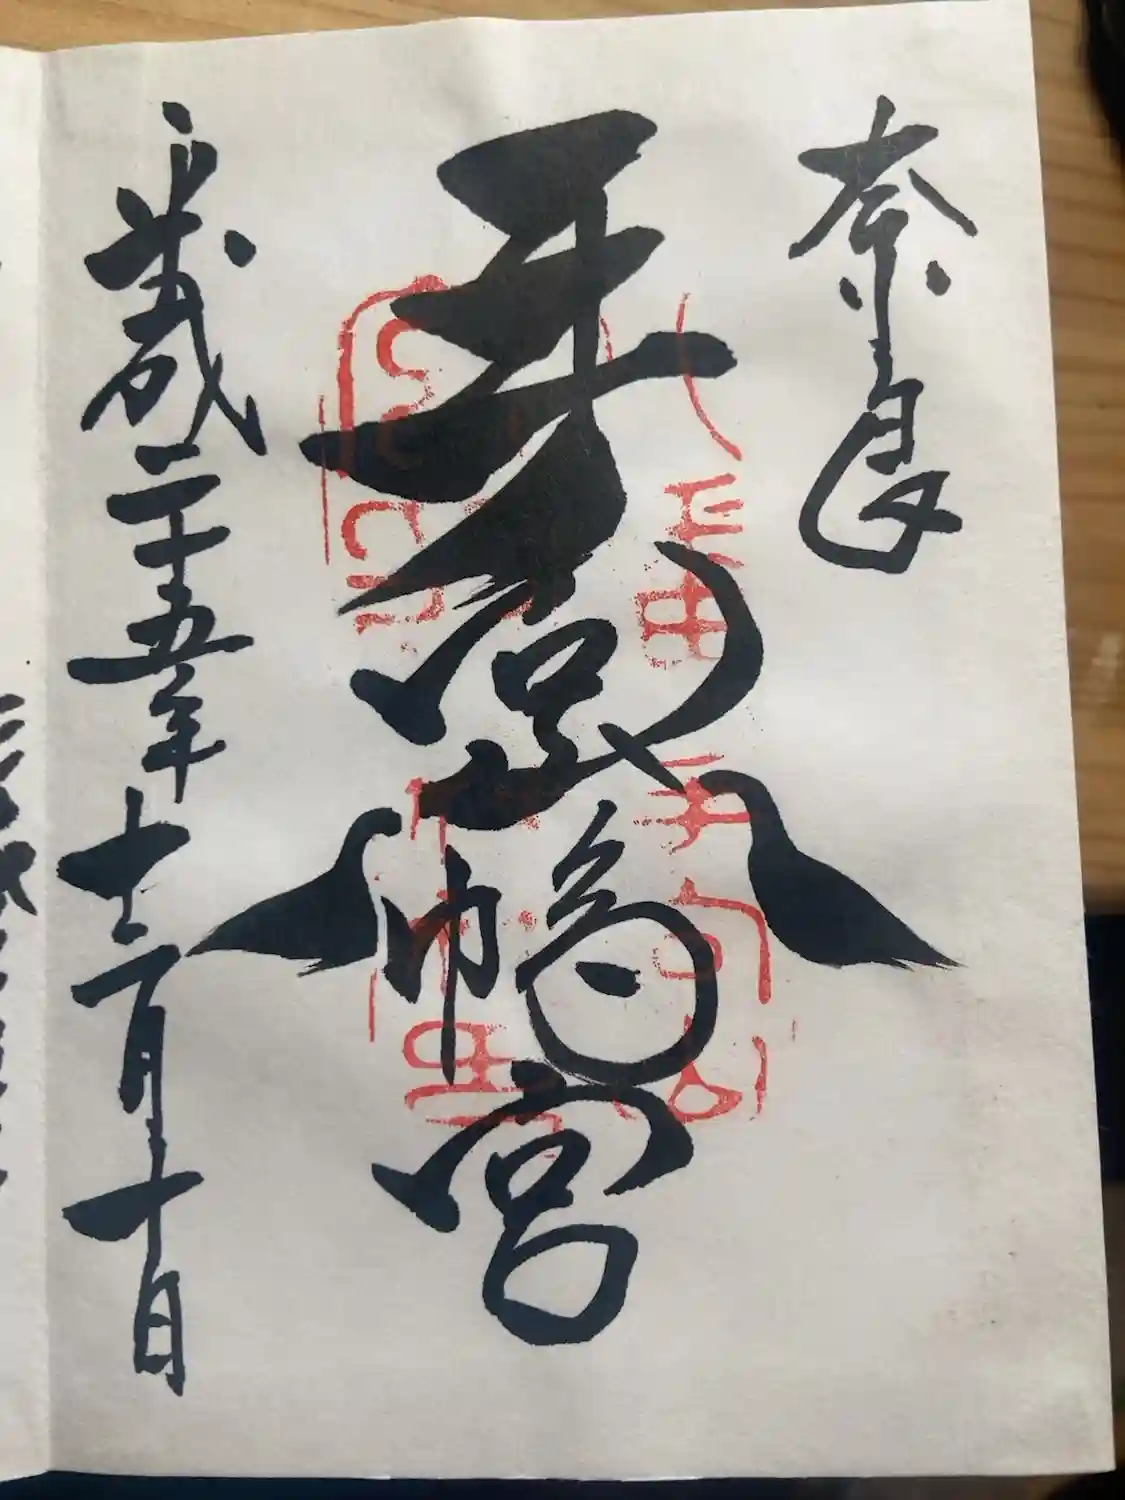 奈良
手向山八幡宮
平成二十五年十二月十日